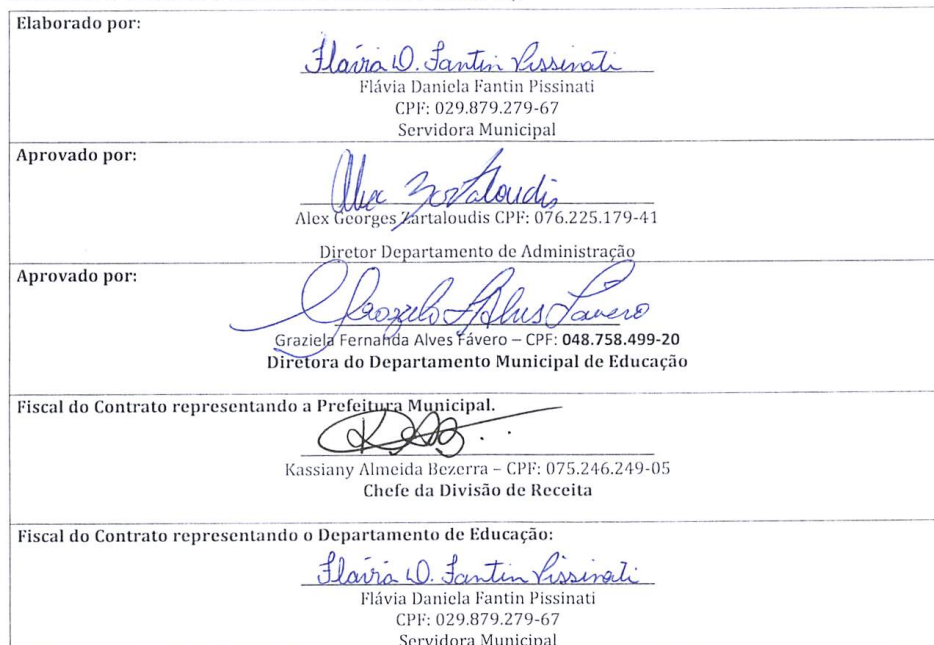 Elaborado por:
Flávia D. Fantin Pissinati
Flávia Daniela Fantin Pissinati
CPF: 029.879.279-67
Servidora Municipal
Aprovado por:
Alex Zartaloudis
Alex Georges Zartaloudis CPF: 076.225.179-41
Diretor Departamento de Administração
Aprovado por:
Graziela F Alves Fávero
Graziela Fernanda Alves Fávero – CPF: 048.758.499-20
Diretora do Departamento Municipal de Educação
Fiscal do Contrato representando a Prefeitura Municipal.
Kassiany Almeida Bezerra – CPF: 075.246.249-05
Chefe da Divisão de Receita
Fiscal do Contrato representando o Departamento de Educação:
Flávia D. Fantin Pissinati
Flávia Daniela Fantin Pissinati
CPF: 029.879.279-67
Servidora Municipal